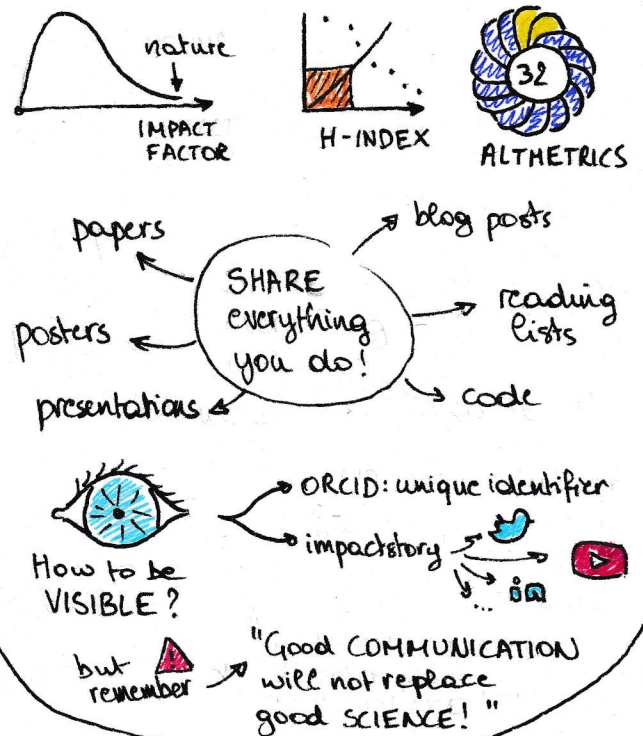 nature
IMPACT
FACTOR
H-INDEX
32
ALTMETRICS
SHARE
everything
you do!
papers
posters
presentations
blog posts
reading
lists
code
How to be
VISIBLE?
ORCID: unique identifier
impactstory
in
...
but
remember
"Good COMMUNICATION
will not replace
good SCIENCE!"